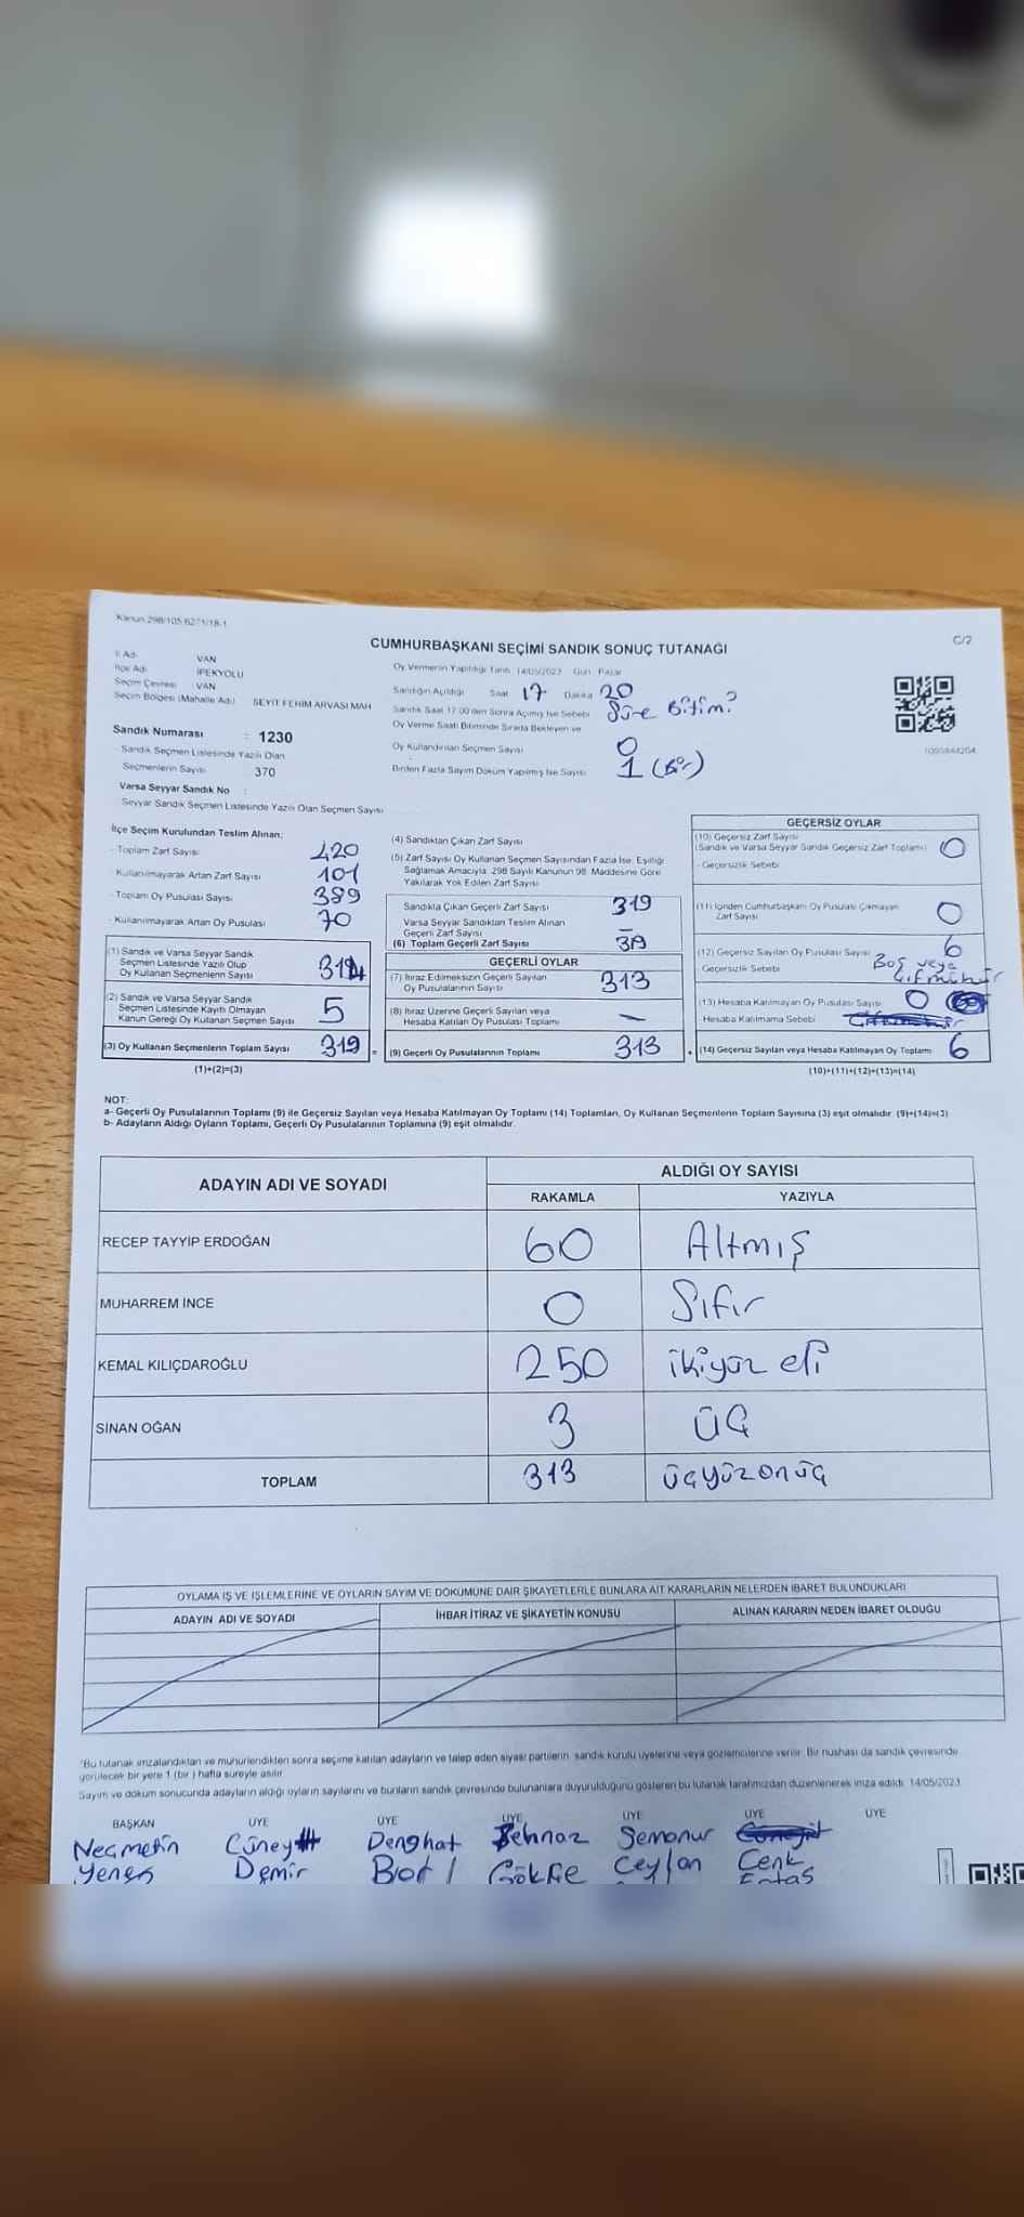 Kanun 298/105 6271/18-1
C/2
CUMHURBAŞKANI SEÇİMİ SANDIK SONUÇ TUTANAĞI
İl Adı VAN
İlçe Adı İPEKYOLU
Seçim Çevresi VAN
Seçim Bölgesi (Mahalle Adı) SEYİT FEHİM ARVASİ MAH
Sandık Numarası : 1230
Sandık Seçmen Listesinde Yazılı Olan
Seçmenlerin Sayısı 370
Varsa Seyyar Sandık No :
Seyyar Sandık Seçmen Listesinde Yazılı Olan Seçmen Sayısı
Oy Vermenin Yapıldığı Tarih 14/05/2023 Gün Pazar
Sandığın Açıldığı Saat 17 Dakika 20
Sandık Saat 17:00'den Sonra Açılmış İse Sebebi Süre Bitim?
Oy Verme Saati Bitiminde Sırada Bekleyen ve
Oy Kullandırılan Seçmen Sayısı 0
Birden Fazla Sayım Döküm Yapılmış İse Sayısı 1 (Bir)
İlçe Seçim Kurulundan Teslim Alınan;
- Toplam Zarf Sayısı 420
- Kullanılmayarak Artan Zarf Sayısı 101
- Toplam Oy Pusulası Sayısı 389
- Kullanılmayarak Artan Oy Pusulası 70
(1) Sandık ve Varsa Seyyar Sandık
Seçmen Listesinde Yazılı Olup
Oy Kullanan Seçmenlerin Sayısı 314
(2) Sandık ve Varsa Seyyar Sandık
Seçmen Listesinde Kayıtlı Olmayan
Kanun Gereği Oy Kullanan Seçmen Sayısı 5
(3) Oy Kullanan Seçmenlerin Toplam Sayısı 319 =
(1)+(2)=(3)
(4) Sandıktan Çıkan Zarf Sayısı
(5) Zarf Sayısı Oy Kullanan Seçmen Sayısından Fazla İse, Eşitliği
Sağlamak Amacıyla 298 Sayılı Kanunun 98. Maddesine Göre
Yakılarak Yok Edilen Zarf Sayısı
Sandıkta Çıkan Geçerli Zarf Sayısı 319
Varsa Seyyar Sandıktan Teslim Alınan
Geçerli Zarf Sayısı –
(6) Toplam Geçerli Zarf Sayısı 319
GEÇERLİ OYLAR
(7) İtiraz Edilmeksizin Geçerli Sayılan
Oy Pusulalarının Sayısı 313
(8) İtiraz Üzerine Geçerli Sayılan veya
Hesaba Katılan Oy Pusulası Toplamı –
(9) Geçerli Oy Pusulalarının Toplamı 313 +
GEÇERSİZ OYLAR
(10) Geçersiz Zarf Sayısı
(Sandık ve Varsa Seyyar Sandık Geçersiz Zarf Toplamı) 0
- Geçersizlik Sebebi
(11) İçinden Cumhurbaşkanı Oy Pusulası Çıkmayan
Zarf Sayısı 0
(12) Geçersiz Sayılan Oy Pusulası Sayısı 6
Geçersizlik Sebebi Boş veya
çift mühür
(13) Hesaba Katılmayan Oy Pusulası Sayısı 0
- Hesaba Katılmama Sebebi
(14) Geçersiz Sayılan veya Hesaba Katılmayan Oy Toplamı 6
(10)+(11)+(12)+(13)=(14)
NOT:
a- Geçerli Oy Pusulalarının Toplamı (9) ile Geçersiz Sayılan veya Hesaba Katılmayan Oy Toplamı (14) Toplamları, Oy Kullanan Seçmenlerin Toplam Sayısına (3) eşit olmalıdır. (9)+(14)=(3)
b- Adayların Aldığı Oyların Toplamı, Geçerli Oy Pusulalarının Toplamına (9) eşit olmalıdır.
ADAYIN ADI VE SOYADI
ALDIĞI OY SAYISI
RAKAMLA YAZIYLA
RECEP TAYYİP ERDOĞAN 60 Altmış
MUHARREM İNCE 0 Sıfır
KEMAL KILIÇDAROĞLU 250 ikiyüz elli
SİNAN OĞAN 3 üç
TOPLAM 313 üçyüzonüç
OYLAMA İŞ VE İŞLEMLERİNE VE OYLARIN SAYIM VE DÖKÜMÜNE DAİR ŞİKAYETLERLE BUNLARA AİT KARARLARIN NELERDEN İBARET BULUNDUKLARI
ADAYIN ADI VE SOYADI İHBAR İTİRAZ VE ŞİKAYETİN KONUSU ALINAN KARARIN NEDEN İBARET OLDUĞU
*Bu tutanak imzalandıktan ve mühürlendikten sonra seçime katılan adayların ve talep eden siyasi partilerin, sandık kurulu üyelerine veya gözlemcilerine verilir. Bir nüshası da sandık çevresinde
görülecek bir yere 1 (bir) hafta süreyle asılır.
Sayım ve döküm sonucunda adayların aldığı oyların sayılarını ve bunların sandık çevresinde bulunanlara duyurulduğunu gösteren bu tutanak tarafımızdan düzenlenerek imza edildi. 14/05/2023
BAŞKAN ÜYE ÜYE ÜYE ÜYE ÜYE ÜYE
Necmettin Cüneyt Denghat Behnaz Semanur
Demir Gökçe Ceylan Cenk